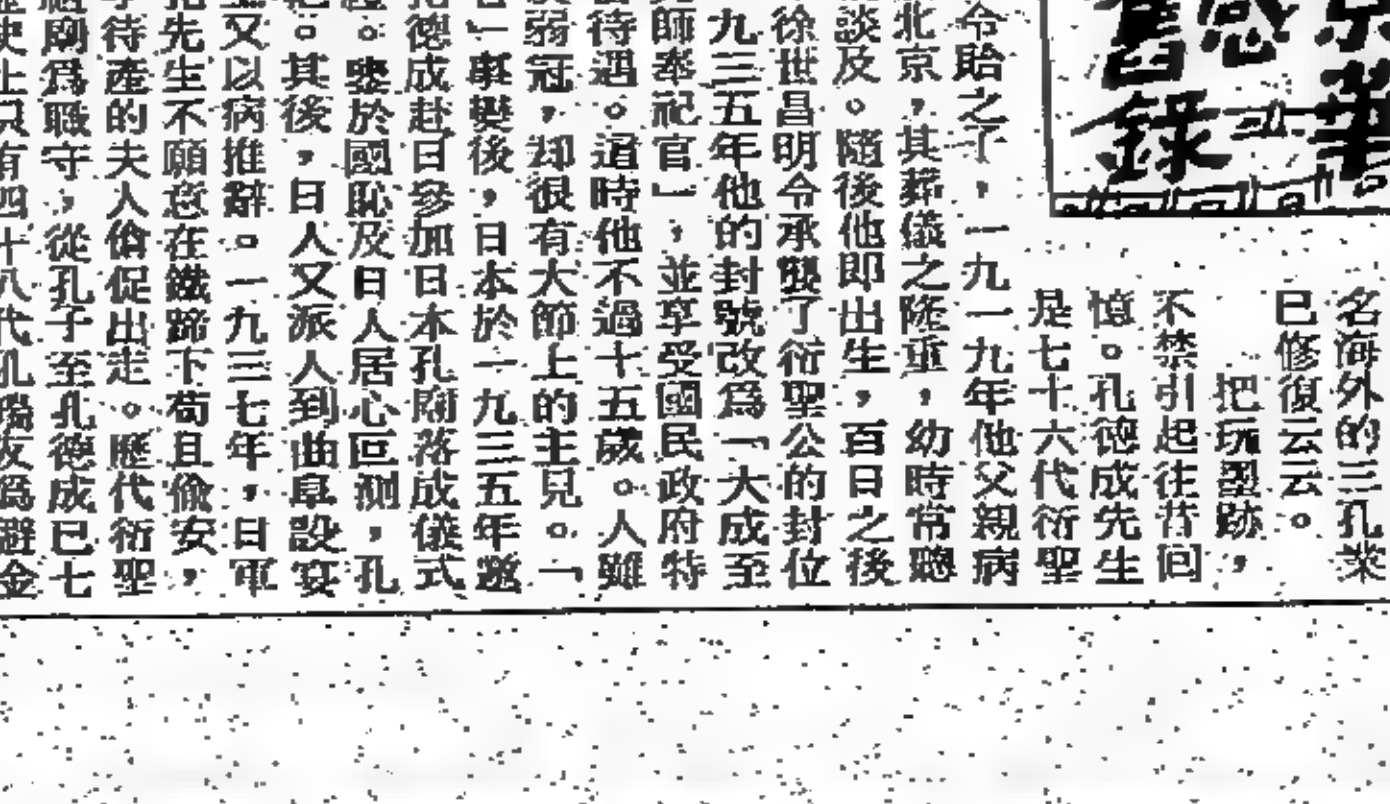 舊錄
感
名海外的三孔業
已修復云云。
把玩型跡，
不禁引起往昔回
憶。孔德成先生
是七十六代衍聖
令貽之了，一九一九年他父親病
北京，其葬儀之隆重，幼時常聽
談及。隨後他即出生，百日之後
徐世昌明令承襲了衍聖公的封位
九三五年他的封號改爲「大成至
師奉祀官」，並享受國民政府特
待遇。這時他不過十五歲。人雖
弱冠，却很有大節上的主見。「
」事變後，日本於一九三五年邀
德成赴日參加日本孔廟落成儀式
。鑒於國恥及日人居心叵測，孔
。其後，日人又派人到曲阜設宴
又以病推辭。一九三七年，日軍
先生不願意在鐵蹄下苟且偷安，
待產的夫人偷促出走。歷代衍聖
廟爲職守，從孔子至孔德成已七
史上只有四十八代孔端友爲避金